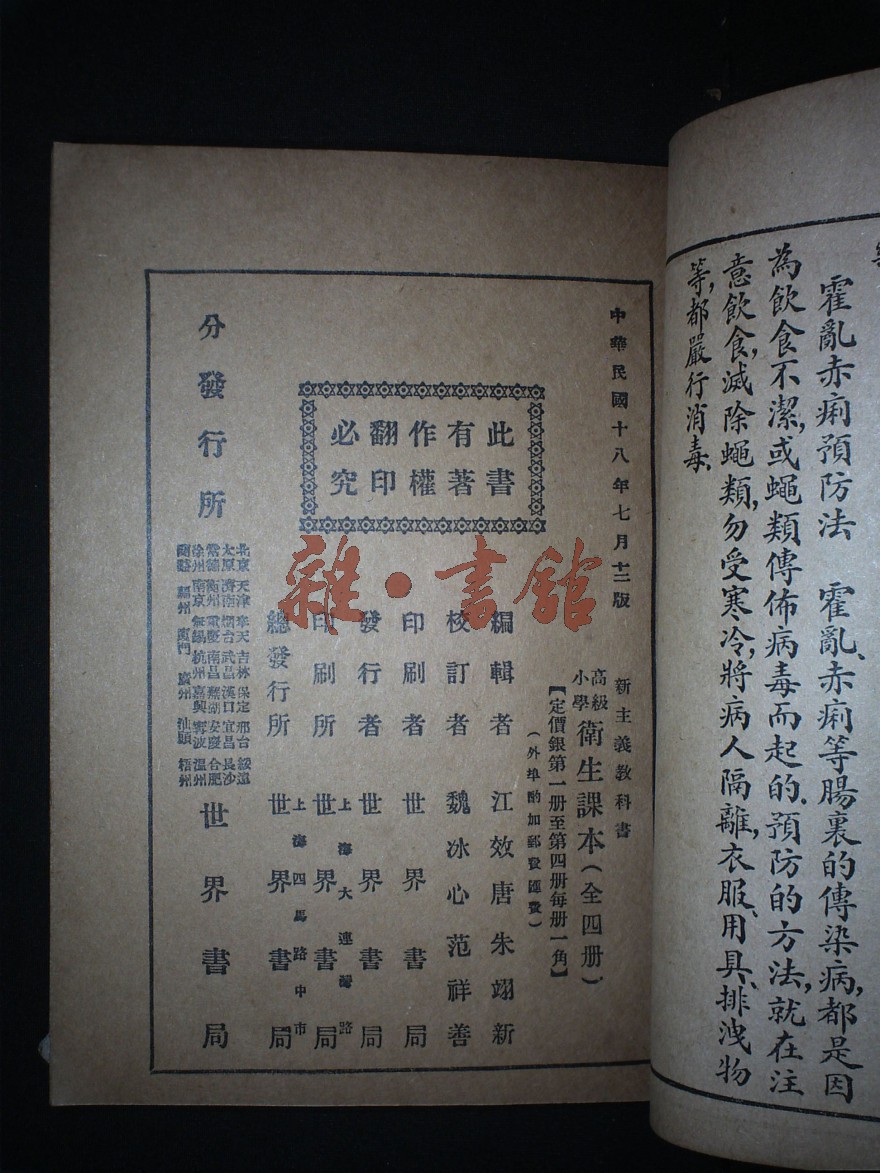 霍亂赤痢預防法　霍亂、赤痢等腸裏的傳染病,都是因
為飲食不潔,或蠅類傳佈病毒而起的、預防的方法,就在注
意飲食,滅除蠅類,勿受寒冷,將病人隔離,衣服、用具、排洩物
等,都嚴行消毒、
中華民國十八年七月十二版
新主義教科書
高級小學衛生課本(全四册)
【定價銀第一册至第四册每册一角】
(外埠酌加郵費匯費)
此書
有著
作權
翻印
必究
編輯者　江效唐朱翊新
校訂者　魏冰心范祥善
印刷者　世界書局
發行者　世界書局
印刷所　上海大連灣路
世界書局
總發行所　上海四馬路中市
世界書局
分發行所
北京 天津 奉天 吉林 保定 邢台 綏遠
太原 濟南 烟台 武昌 漢口 宜昌 長沙
常德 衡州 重慶 南昌 蕪湖 安慶 合肥
徐州 南京 無錫 杭州 嘉興 寧波 溫州
蘭谿 福州 廈門 廣州 汕頭 梧州
世界書局
雜·書館